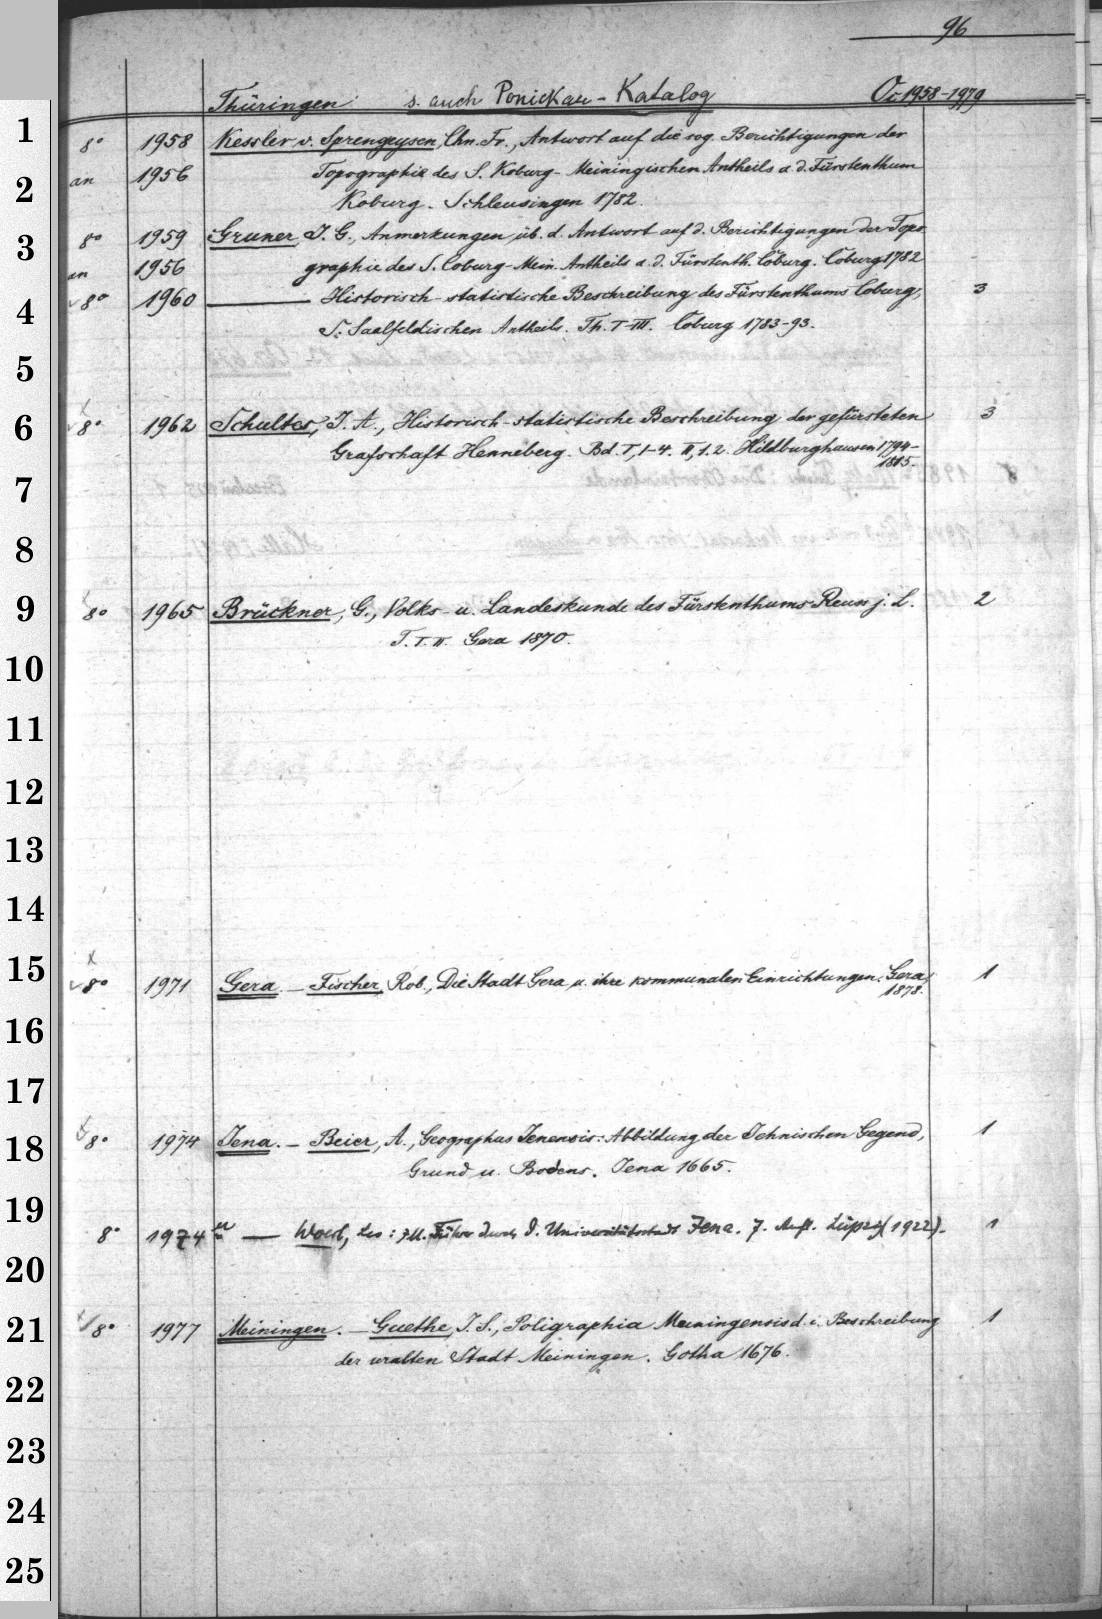 96
Thüringen s. auch Ponickau-Katalog Oc 1958-1979
1 8° 1958 Kessler v. Sprengeysen, Chn. Fr., Antwort auf die sog. Berichtigungen der
2 an 1956 Topographie des S. Koburg-Meiningischen Antheils a. d. Fürstenthum
Koburg. Schleusingen 1782.
3 8° 1959 Gruner, J. G., Anmerkungen üb. d. Antwort auf d. Berichtigungen der Topo-
an 1956 graphie des S. Coburg-Mein. Antheils a. d. Fürstenth. Coburg. Coburg 1782
4 8° 1960 — Historisch-statistische Beschreibung des Fürstenthums Coburg, 3
S. Saalfeldischen Antheils. Th. I-III. Coburg 1783-93.
5
6 8° 1962 Schultes, J. A., Historisch-statistische Beschreibung der gefürsteten 3
Grafschaft Henneberg. Bd. I, 1-4. II, 1.2. Hildburghausen 1794-
1815.
7
8
9 8° 1965 Brückner, G., Volks- u. Landeskunde des Fürstenthums Reuss j. L. 2
T. I. II. Gera 1870.
10
11
12
13
14
15 8° 1971 Gera. – Fischer, Rob., Die Stadt Gera u. ihre kommunalen Einrichtungen. Gera, 1
1878.
16
17
18 8° 1974 Jena. – Beier, A., Geographus Jenensis: Abbildung der Jehnischen Gegend, 1
Grund u. Bodens. Jena 1665.
19 8° 1974 a — Woerl, Leo: Ill. Führer durch d. Universitätsstadt Jena. 7. Aufl. Leipzig (1922). 1
20
21 8° 1977 Meiningen. – Guethe, J. S., Poligraphia Meiningensis d. i. Beschreibung 1
der uralten Stadt Meiningen. Gotha 1676.
22
23
24
25